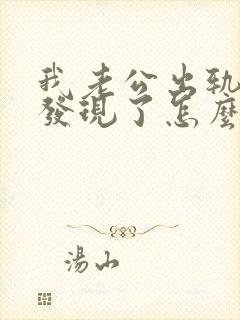 我老公出軌
發現了怎麼
湯山